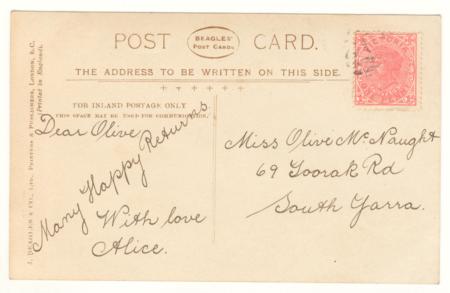 POST CARD.
BEAGLES'
POST CARDS
THE ADDRESS TO BE WRITTEN ON THIS SIDE.
FOR INLAND POSTAGE ONLY
THIS SPACE MAY BE USED FOR COMMUNICATION.
Dear Olive
Many Happy Returns.
With love
Alice.
Miss Olive McNaught
69 Toorak Rd
South Yarra.
J. BEAGLES & CO., LTD., PRINTERS & PUBLISHERS, LONDON, E.C.
Printed in England.